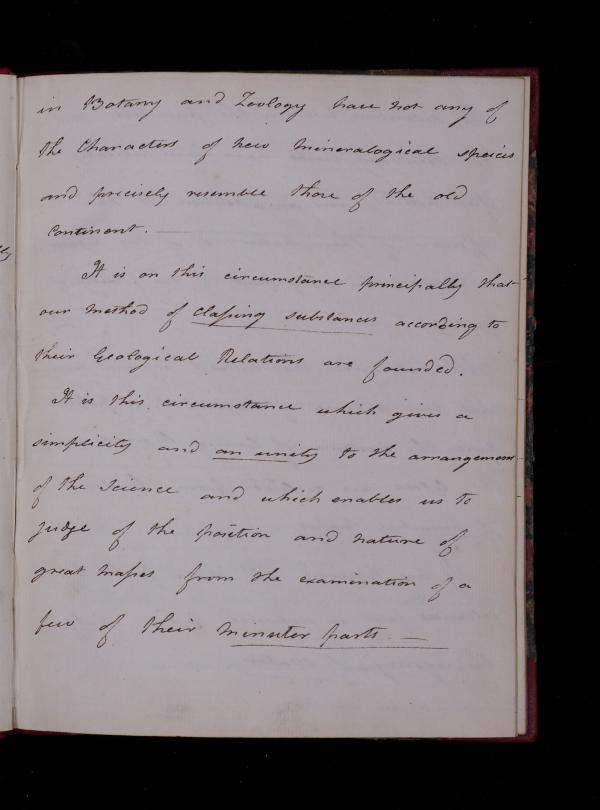 in Botany and Zoology have not any of
the Characters of new Mineralogical species
and precisely resemble those of the old
Continent.
It is on this circumstance principally that
our method of claſsing substances according to
their Geological Relations are founded.
It is this circumstance which gives a
simplicity and an unity to the arrangement
of the Science and which enables us to
judge of the position and nature of
great maſses from the examination of a
few of their minuter parts. —